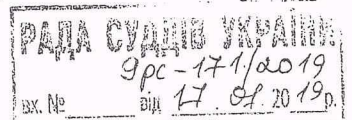 РАДА СУДДІВ УКРАЇНИ
9рс-171/2019
вх. № від 17.07.2019р.